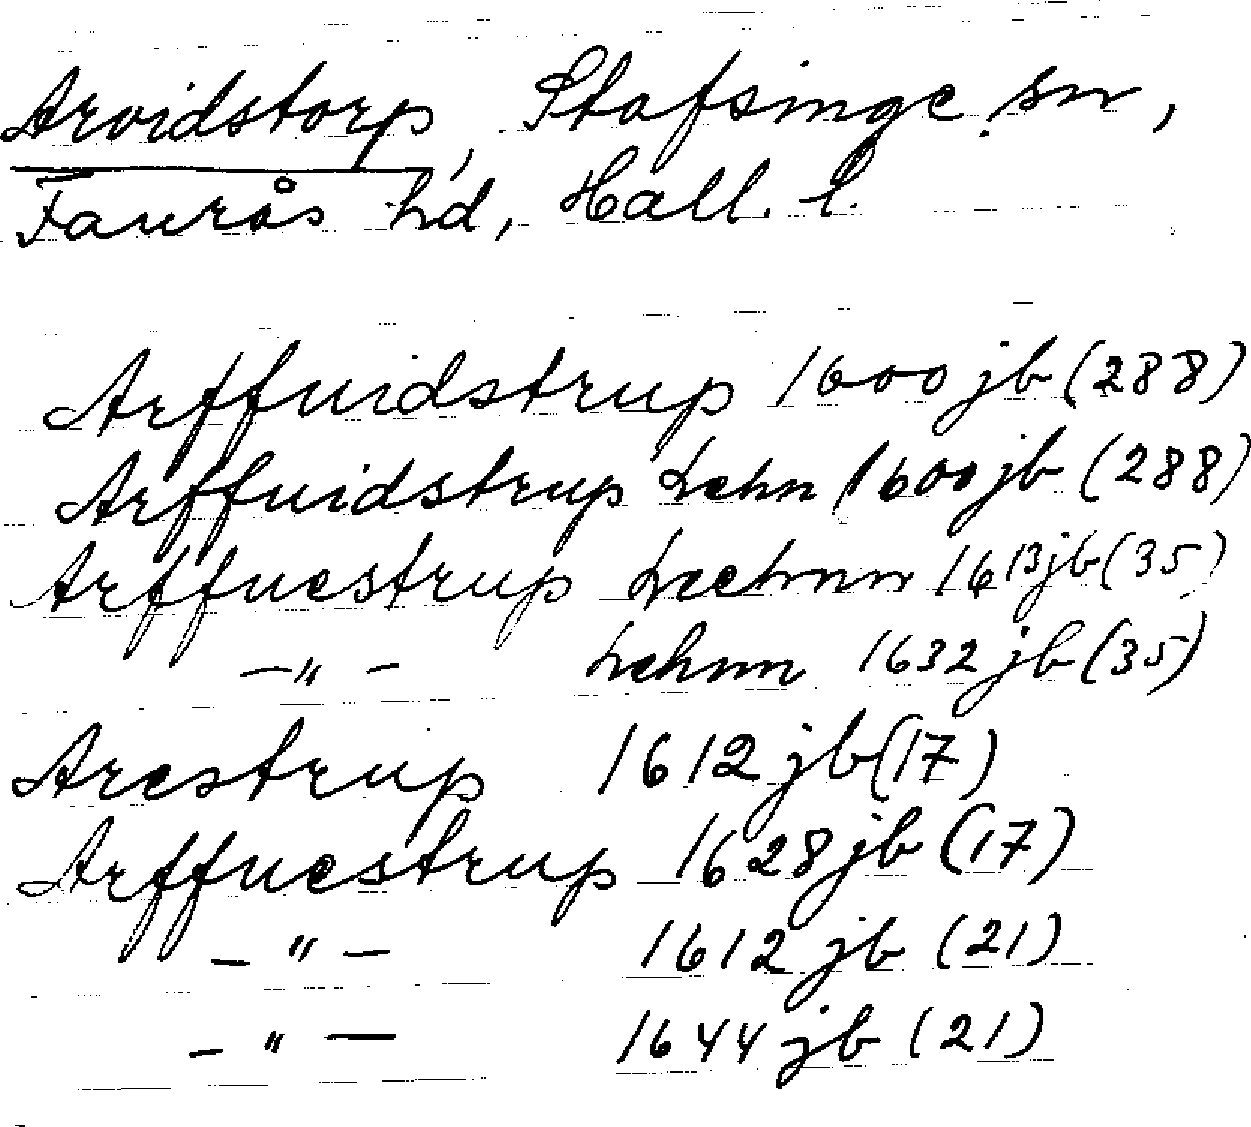 Arvidstorp, Stafsinge sn,
Faurås hd, Hall. l.
Arffuidstrup 1600 jb (288)
Arffuidstrup Lehn 1600 jb (288)
Arffuestrup Leehnn 1613 jb (35)
—"— Lehnn 1632 jb (35)
Arestrup 1612 jb (17)
Arffuestrup 1628 jb (17)
—"— 1612 jb (21)
—"— 1644 jb (21)